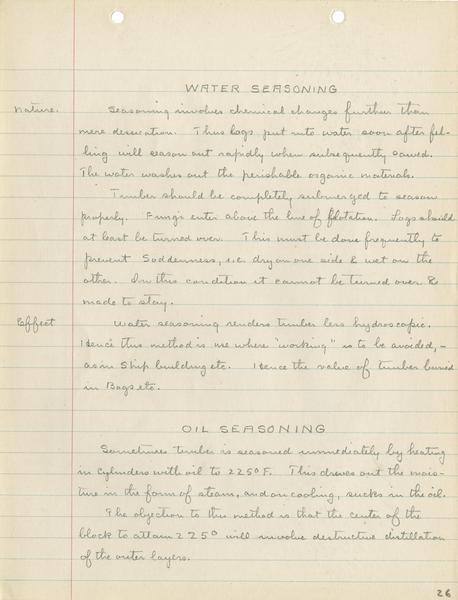 WATER SEASONING
Nature. Seasoning involves chemical changes further than
mere dessecation. Thus logs put into water soon after fel-
ling will season out rapidly when subsequently sawed.
The water washes out the perishable organic materials.
Timber should be completely submerged to season
properly. Fungi enter above the line of flotation. Logs should
at least be turned over. This must be done frequently to
prevent Soddenness, i.e. dry on one side & wet on the
other. In this condition it cannot be turned over &
made to stay.
Effect Water seasoning renders timber less hydroscopic.
Hence this method is use where "working" is to be avoided,-
as in Ship building etc. Hence the value of timber buried
in Bogs etc.
OIL SEASONING
Sometimes timber is seasoned immediately by heating
in cylinders with oil to 225°F. This draws out the mois-
ture in the form of steam, and on cooling, sucks in the oil.
The objection to this method is that the center of the
block to attain 225° will involve destructive distillation
of the outer layers.
26